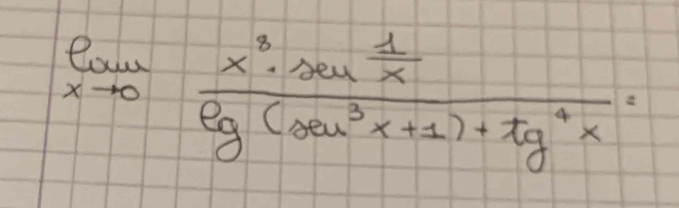 lim x→0 (x⁸ · sen 1/x) / (lg (sen³ x + 1) + tg⁴ x) =